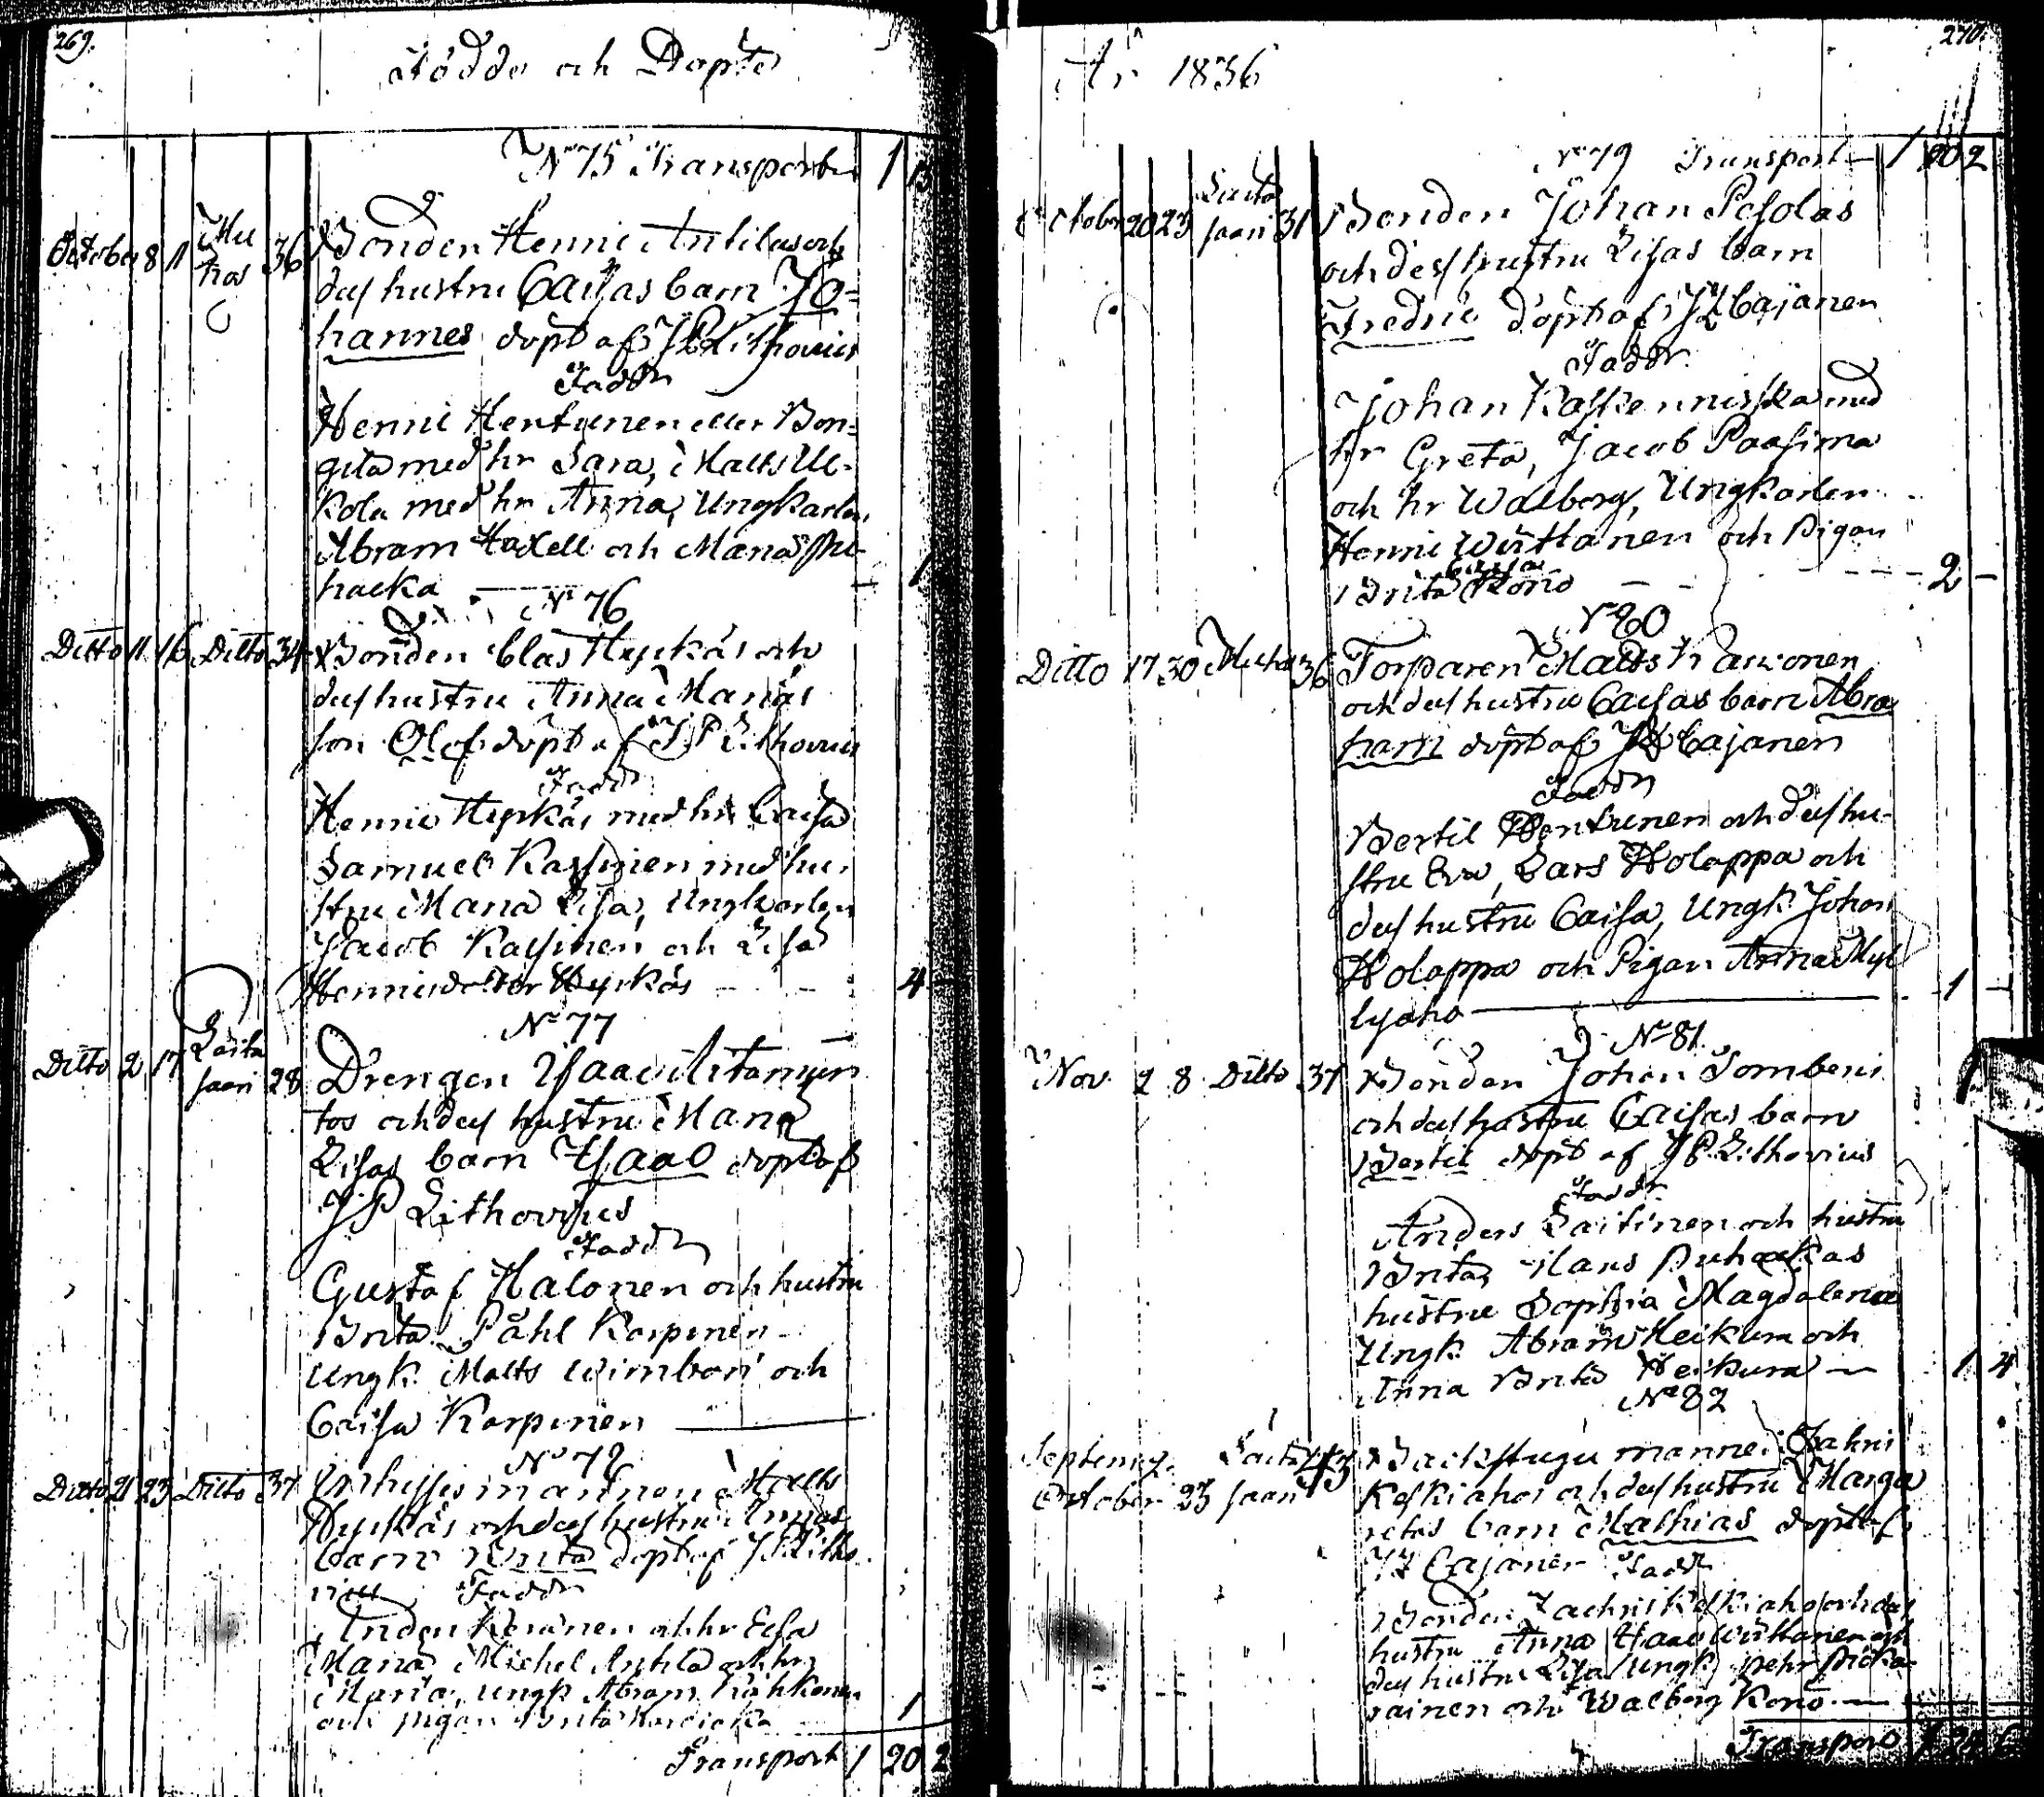 269.
Födde och Döpte
No 75 Transport 1 13
October 8 11 Mu
hos 36 Bonden Henric Antilas och
dess hustru Caisas barn Jo=
hannes döpt af J P Lithovius
Faddr
Henric Hentunen eller Bon=
gila med hr Sara, Matts Ul-
kola med hr Anna, Ungkarlen
Abram Haxell och Maria Pu-
hacka 1
No 76
Ditto 11 16 Ditto 34 Bonden Clas Hyrkäs och
dess hustru Anna Marias
son Olof döpt af J P Lithovius
Faddr
Henric Hyrkäs med hr Caisa
Samuel Kassinen med hu-
stru Maria Lisa, Ungkarlen
Jacob Kassinen och Lisa
Henricsdotter Hyrkäs 4
No 77
Ditto 2 17 Laita
saari 28 Drengen Isaac Aitamur
tos och dess hustru Maria
Lisas barn Isaac döpt af
J P Lithovius
Faddr
Gustaf Halonen och hustru
Brita Påhl Karpinen
Ungk. Matts Wimbari och
Caisa Karpinen
No 78
Ditto 21 23 Ditto 37 Inhysesmannen Matts
Hyrkäs och dess hustru Annas
barn Brita döpt af J P Litho
vius Faddr
Anders Keränen och hr Elsa
Maria Michel Antila och hr
Maria, Ungk Abram
och pigan Brita 1
Transport 1 20 2
År 1836
270.
No 79 Transport 1 20 2
October 20 23 Laita
saari 31 Bonden Johan Pesolas
och dess hustru Lisas barn
Fredric döpt af J F Cajanen
Faddr
Johan Koskenniska med
hr Greta, Jacob Paasima
och hr Walborg, Ungkarlen
Henric Wirttanen och Pigan
Brita Caisa Kono 2
No 80
Ditto 17 30 Muhos 36 Torparen Matts
och dess hustru Caisas barn Abra
ham döpt af J F Cajanen
Faddr
Bertil Hentunen och dess hu-
stru Eva, Lars Holappa och
dess hustru Caisa, Ungk Johan
Holappa och Pigan Anna Myl
lyaho 1
No 81
Nov. 2 8 Ditto 37 Bonden Johan Tomberi
och dess hustru Caisas barn
Bertil döpt af J P Lithovius
Faddr
Anders Laitinen och hustru
Brita, Hans Puhackas
hustru Sophia Magdalena
Ungk. Abram Heikura och
Anna Brita Heikura 1 4
No 82
September
October 23 Laita
saari 43 Backstugumannen Zachris
Keskiahos och dess hustru Marga
retas barn Mathias döpt af
J F Cajanen Faddr
Bonden Zachris Keskiaho och dess
hustru Anna Isaac Wirttanen och
dess hustru Lisa Ungk Pehr Picka-
rainen och Walborg Kono
Transport